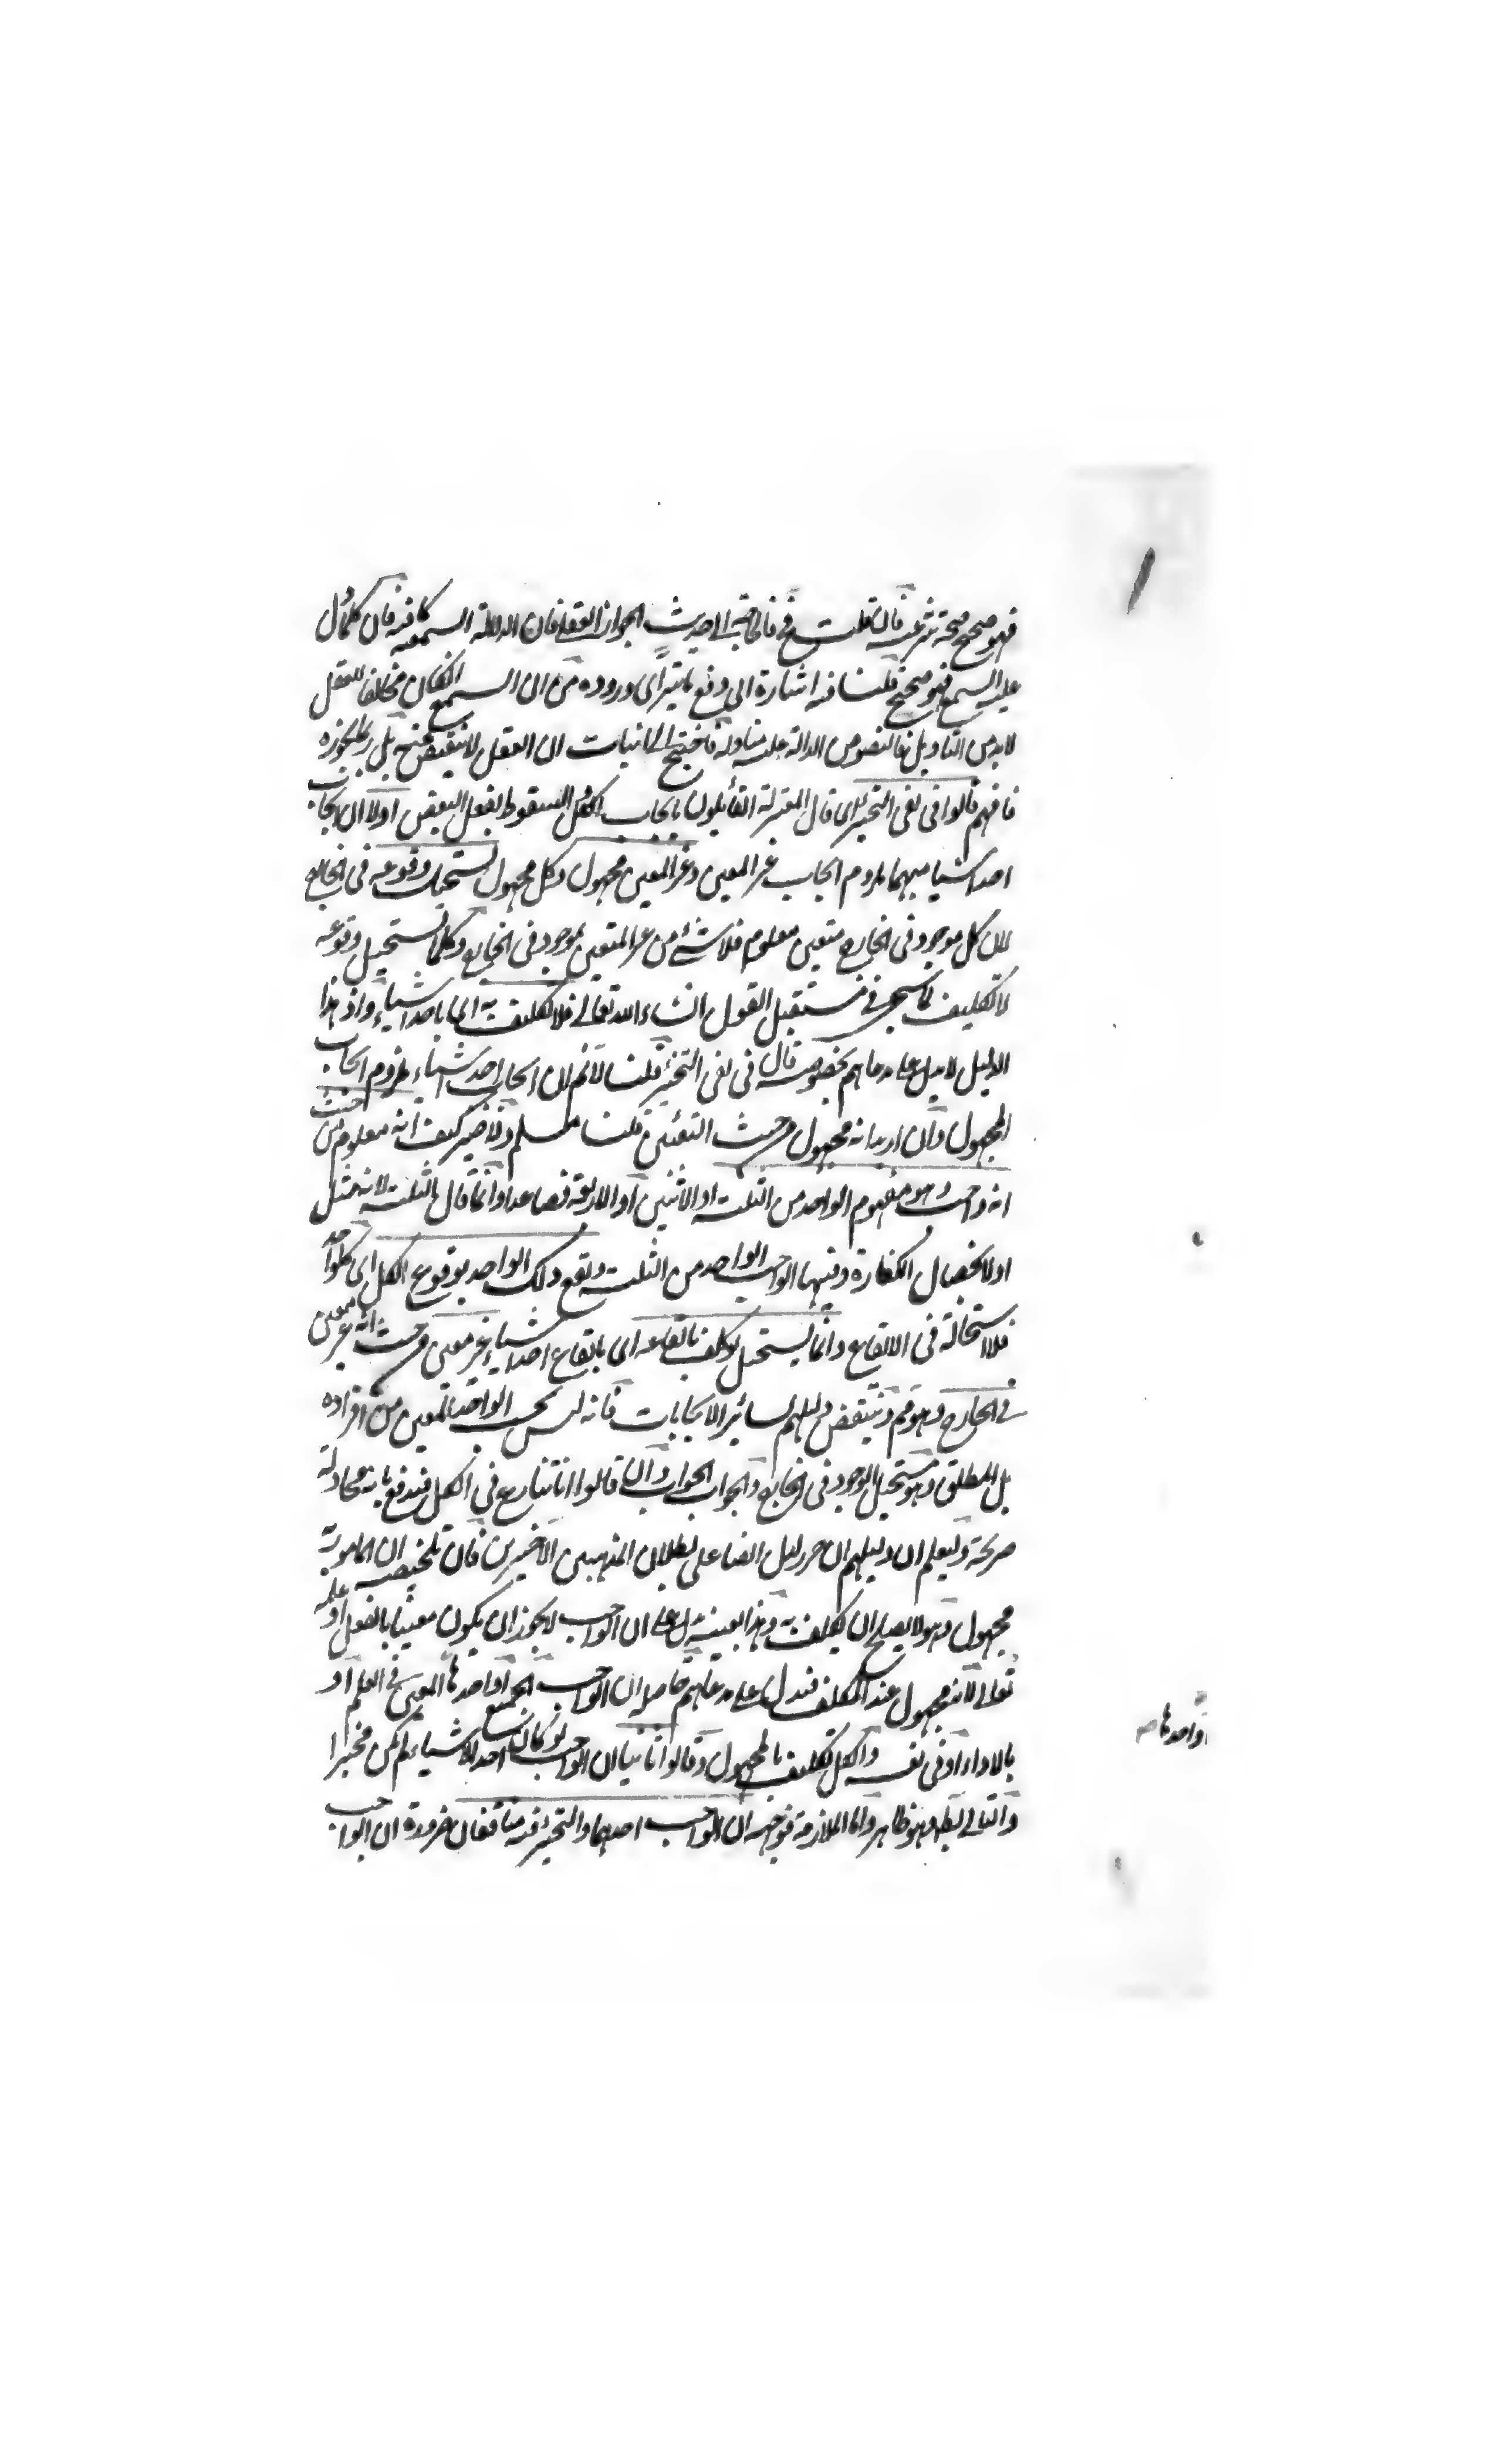 فهو صحيح صحة شرعية فان قلت فح فالحاجة الى حديث الجواز العقلي فان الدلالة السمعية كافية فان كلما دل
عليه السمع فهو صحيح قلنا فيه اشارة الى دفع ما يتراى وروده من ان السمع ان كان مخالفا للعقل
لا بد من التاويل فالنصوص الدالة عليه مناولة فاحتيج الى اثبات ان العقل لا يقتضى بل ربما يجوزه
فافهم قالوا فى نفى التخيير اى قال المعتزلة القائلون بايجاب الكل السقوط بفعل البعض اولا ان ايجاب
احد اشيا مبهما ملزوم ايجاب غير المعين وغير المعين مجهول وكل مجهول يستحيل وقوعه فى الخارج
لان كل موجود فى الخارج متعين معلوم فلا شئ من غير المتعين بموجود فى الخارج وكلما يستحيل وقوعه
لا تكليف كما سيجئ فى مستقبل القول انشاء الله تعالى فلا تكليف به اى باحد اشياء واذ هذا
الدليل لا يدل على مدعاهم بخصوصه قال فى نفى التخيير قلنا لا نم لان ايجاب احد اشياء ملزوم ايجاب
المجهول وان اريد انه مجهول من حيث التعين قلنا مسلم ولا ضير كيف انه معلوم من حيث
انه واجب وهو مفهوم الواحد من الثلثة او الاثنين او الاربعة فصاعدا وانما قال الثلثة لانه مثل
اولا بخصال الكفارة وفيها الواجب الواحد من الثلثة ويقع ذلك الواحد بوقوع الكل اى كل واحد
فلا استحالة فى الايقاع وانما يستحيل لو كلف بايقاعه اى بايقاع احد اشياء غير معين من حيث انه غير معين
فى الخارج وهو مم وينتقض دليلهم بسائر الايجابات فانه ليس يجب الواحد المعين من افراده
بل المطلق وهو مستحيل الوجود فى الخارج والجواب الجواب وان قالوا انا نتنازع فى الكل فيدفع بانه مجادلة
صريحة وليعلم ان دليلهم ان حرر ليل ايضا على بطلان المذهبين الاخيرين فان تلخيصه ان المامور به
مجهول وهو لا يصلح ان يكلف به وهذا بعينه يدل على ان الواجب لا يجوز ان يكون معينا بالفعل او علمه
تعالى لانه مجهول عند المكلف فيدل على مدعاهم حاصله ان الواجب الجميع او احدها المعين فى العلم او
بالاداء او فى نفسه والكل تكليف بالمجهول وقالوا ثانيا ان الواجب لو كان احد الاشياء لم يكن مخيرا
والتالى بط وهو ظاهر واما الملازمة فوجهه ان الواجب احدهما والتخيير فيه متنافيان ضرورة ان الواجب
او احدها صه